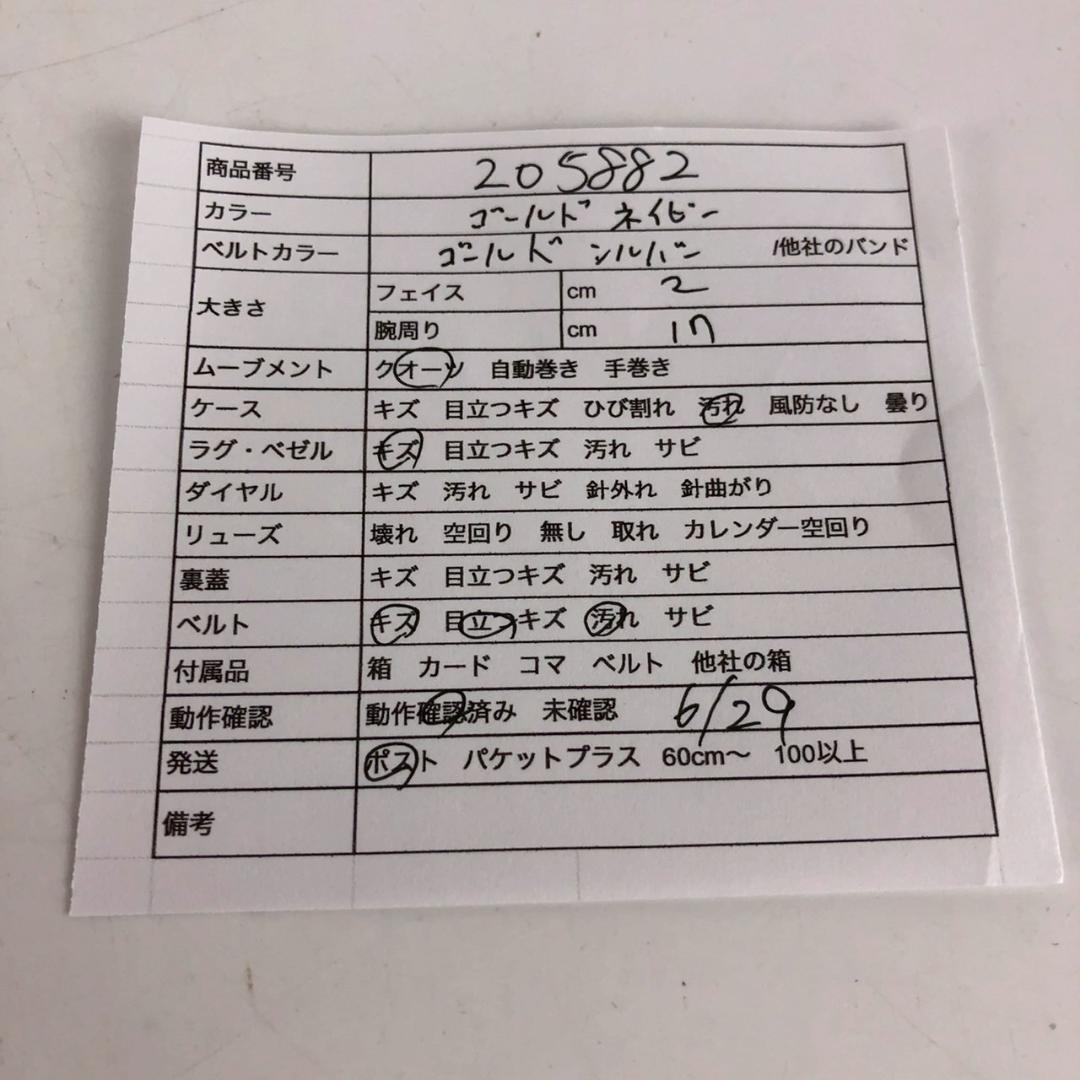 商品番号 205882
カラー ゴールド ネイビー
ベルトカラー ゴールド シルバー /他社のバンド
大きさ フェイス cm 2
腕周り cm 17
ムーブメント クオーツ 自動巻き 手巻き
ケース キズ 目立つキズ ひび割れ 汚れ 風防なし 曇り
ラグ・ベゼル キズ 目立つキズ 汚れ サビ
ダイヤル キズ 汚れ サビ 針外れ 針曲がり
リューズ 壊れ 空回り 無し 取れ カレンダー空回り
裏蓋 キズ 目立つキズ 汚れ サビ
ベルト キズ 目立つキズ 汚れ サビ
付属品 箱 カード コマ ベルト 他社の箱
動作確認 動作確認済み 未確認 6/29
発送 ポスト パケットプラス 60cm〜 100以上
備考